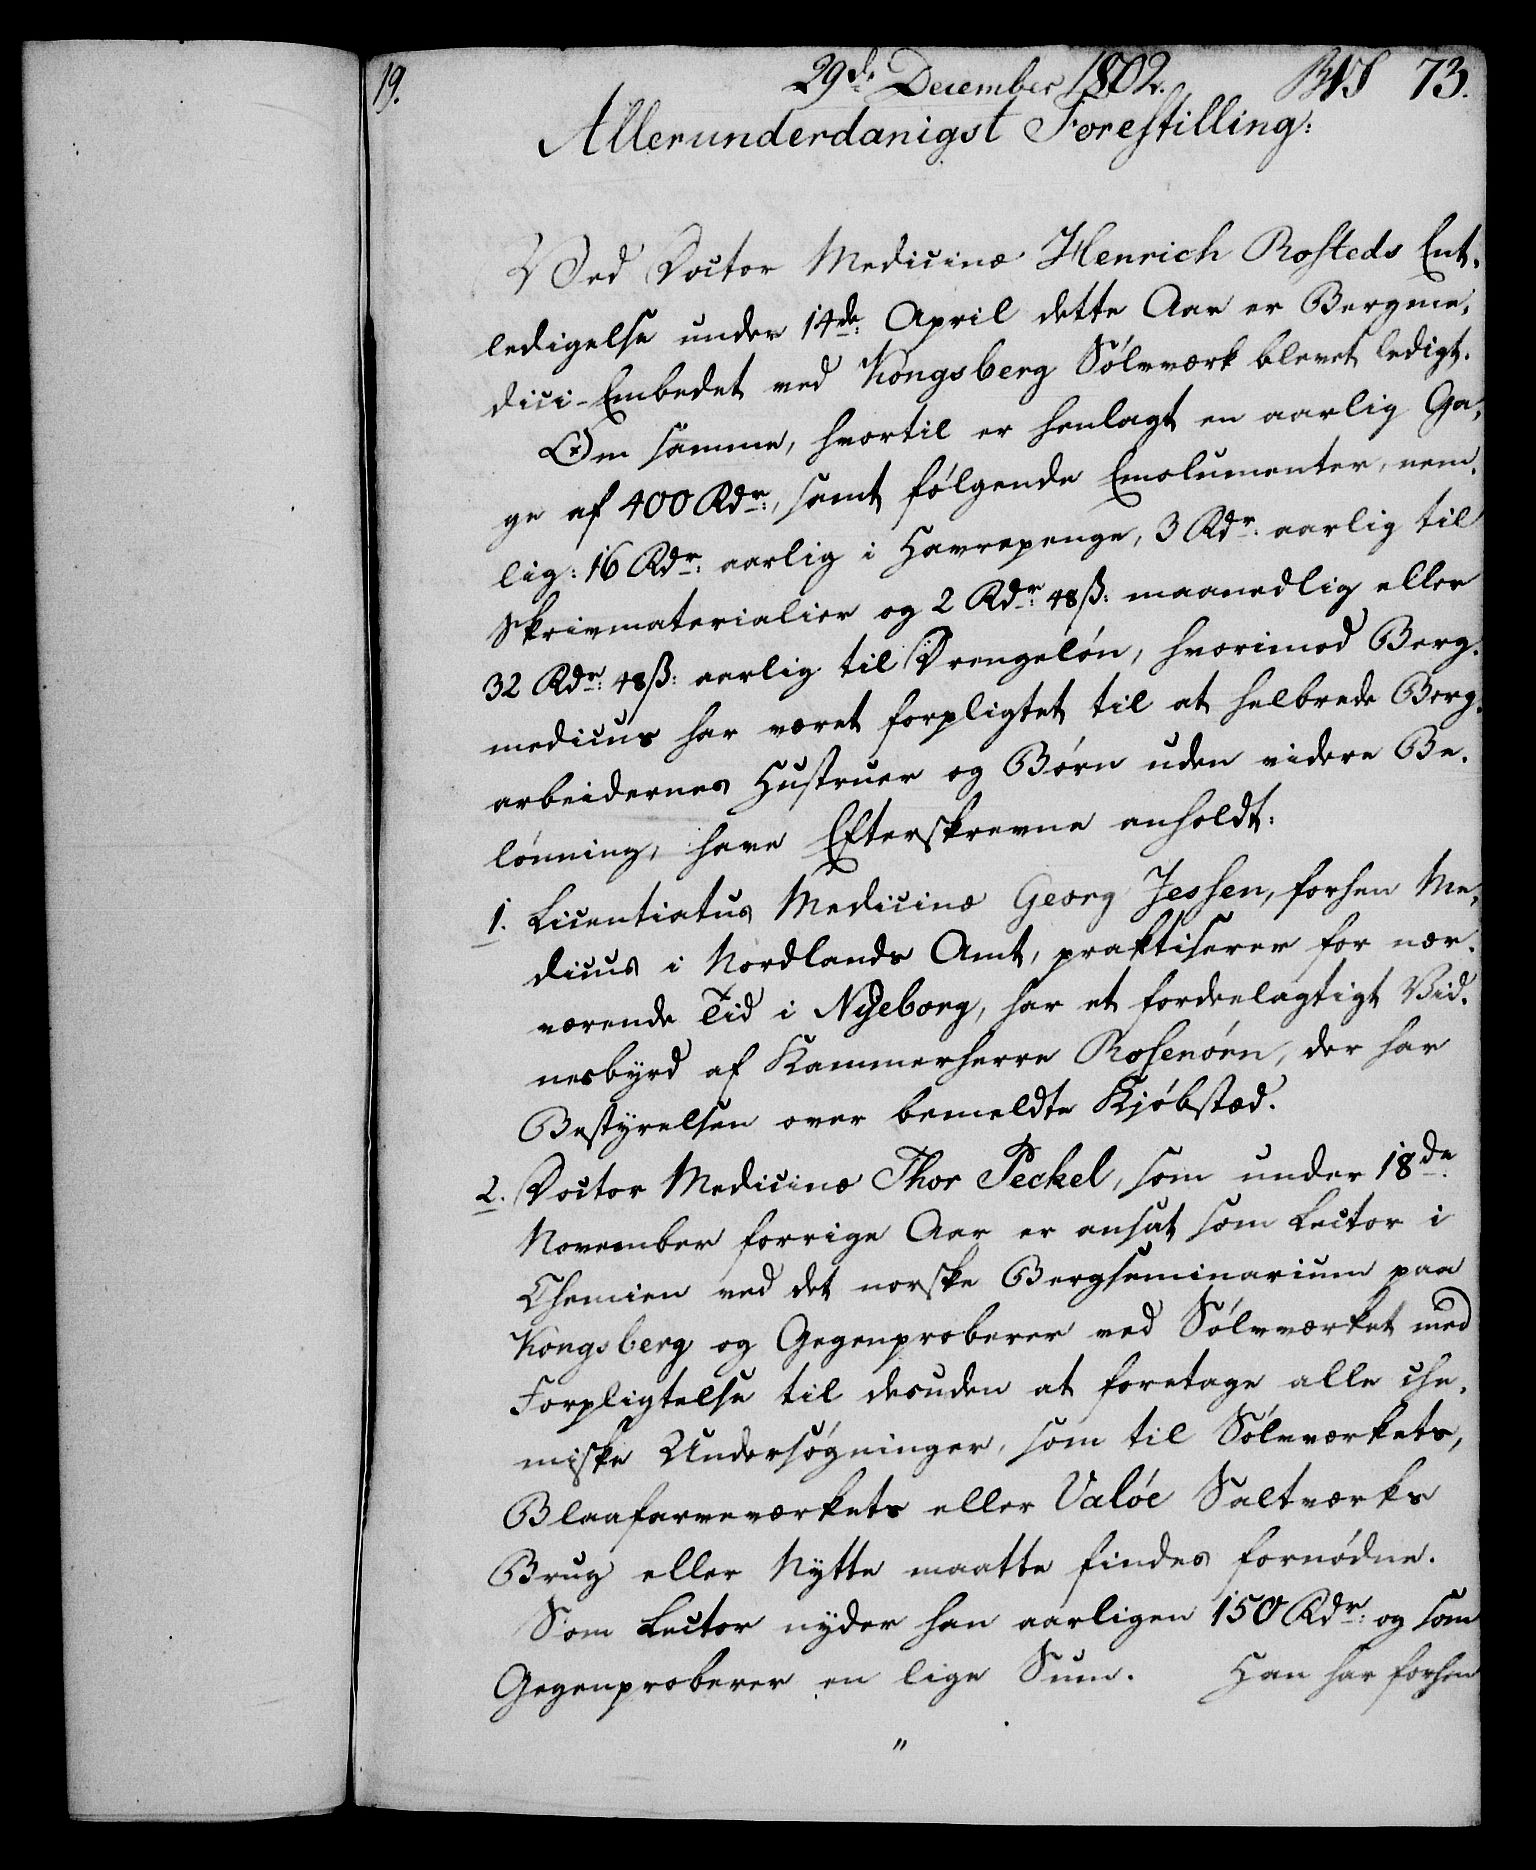 19.
29de December 1802. 73.
Allerunderdanigst Forestilling:
Ved Doctor Medicinæ Henrich Rosteds Ent-
ledigelse under 14de: April dette Aar er Bergme-
dici-Embedet ved Kongsberg Sølvværk blevet ledigt.
Om samme, hvortil er henlagt en aarlig Ga-
ge af 400 Rdr:, samt følgende Emolumenter, nem-
lig: 16 Rdr: aarlig i Havrepenge, 3 Rdr: aarlig til
Skrivmaterialier og 2 Rdr: 48 ß: maanedlig eller
32 Rdr: 48 ß: aarlig til Drengeløn, hvorimod Berg-
medicus har været forpligtet til at helbrede Berg-
arbeidernes Hustruer og Børn uden videre Be-
lønning, have Efterskrevne anholdt:
1. Licentiatus Medicinæ Georg Jessen, forhen Me-
dicus i Nordlands Amt, praktiserer for nær-
værende Tid i Nyeborg, har et fordeelagtigt Vid-
nesbyrd af Kammerherre Rosenørn, der har
Bestyrelsen over bemeldte Kjøbstæd.
2. Doctor Medicinæ Thor Peckel, som under 18de
November forrige Aar er ansat som Lector i
Chemien ved det norske Bergseminarium paa
Kongsberg og Gegenproberer ved Sølvværket med
Forpligtelse til desuden at foretage alle che-
miske Undersøgninger, som til Sølvværkets,
Blaafarveværkets eller Valøe Saltværks
Brug eller Nytte maatte findes fornødne.
Som Lector nyder han aarligen 150 Rdr: og som
Gegenproberer en lige Sum. Han har forhen
"